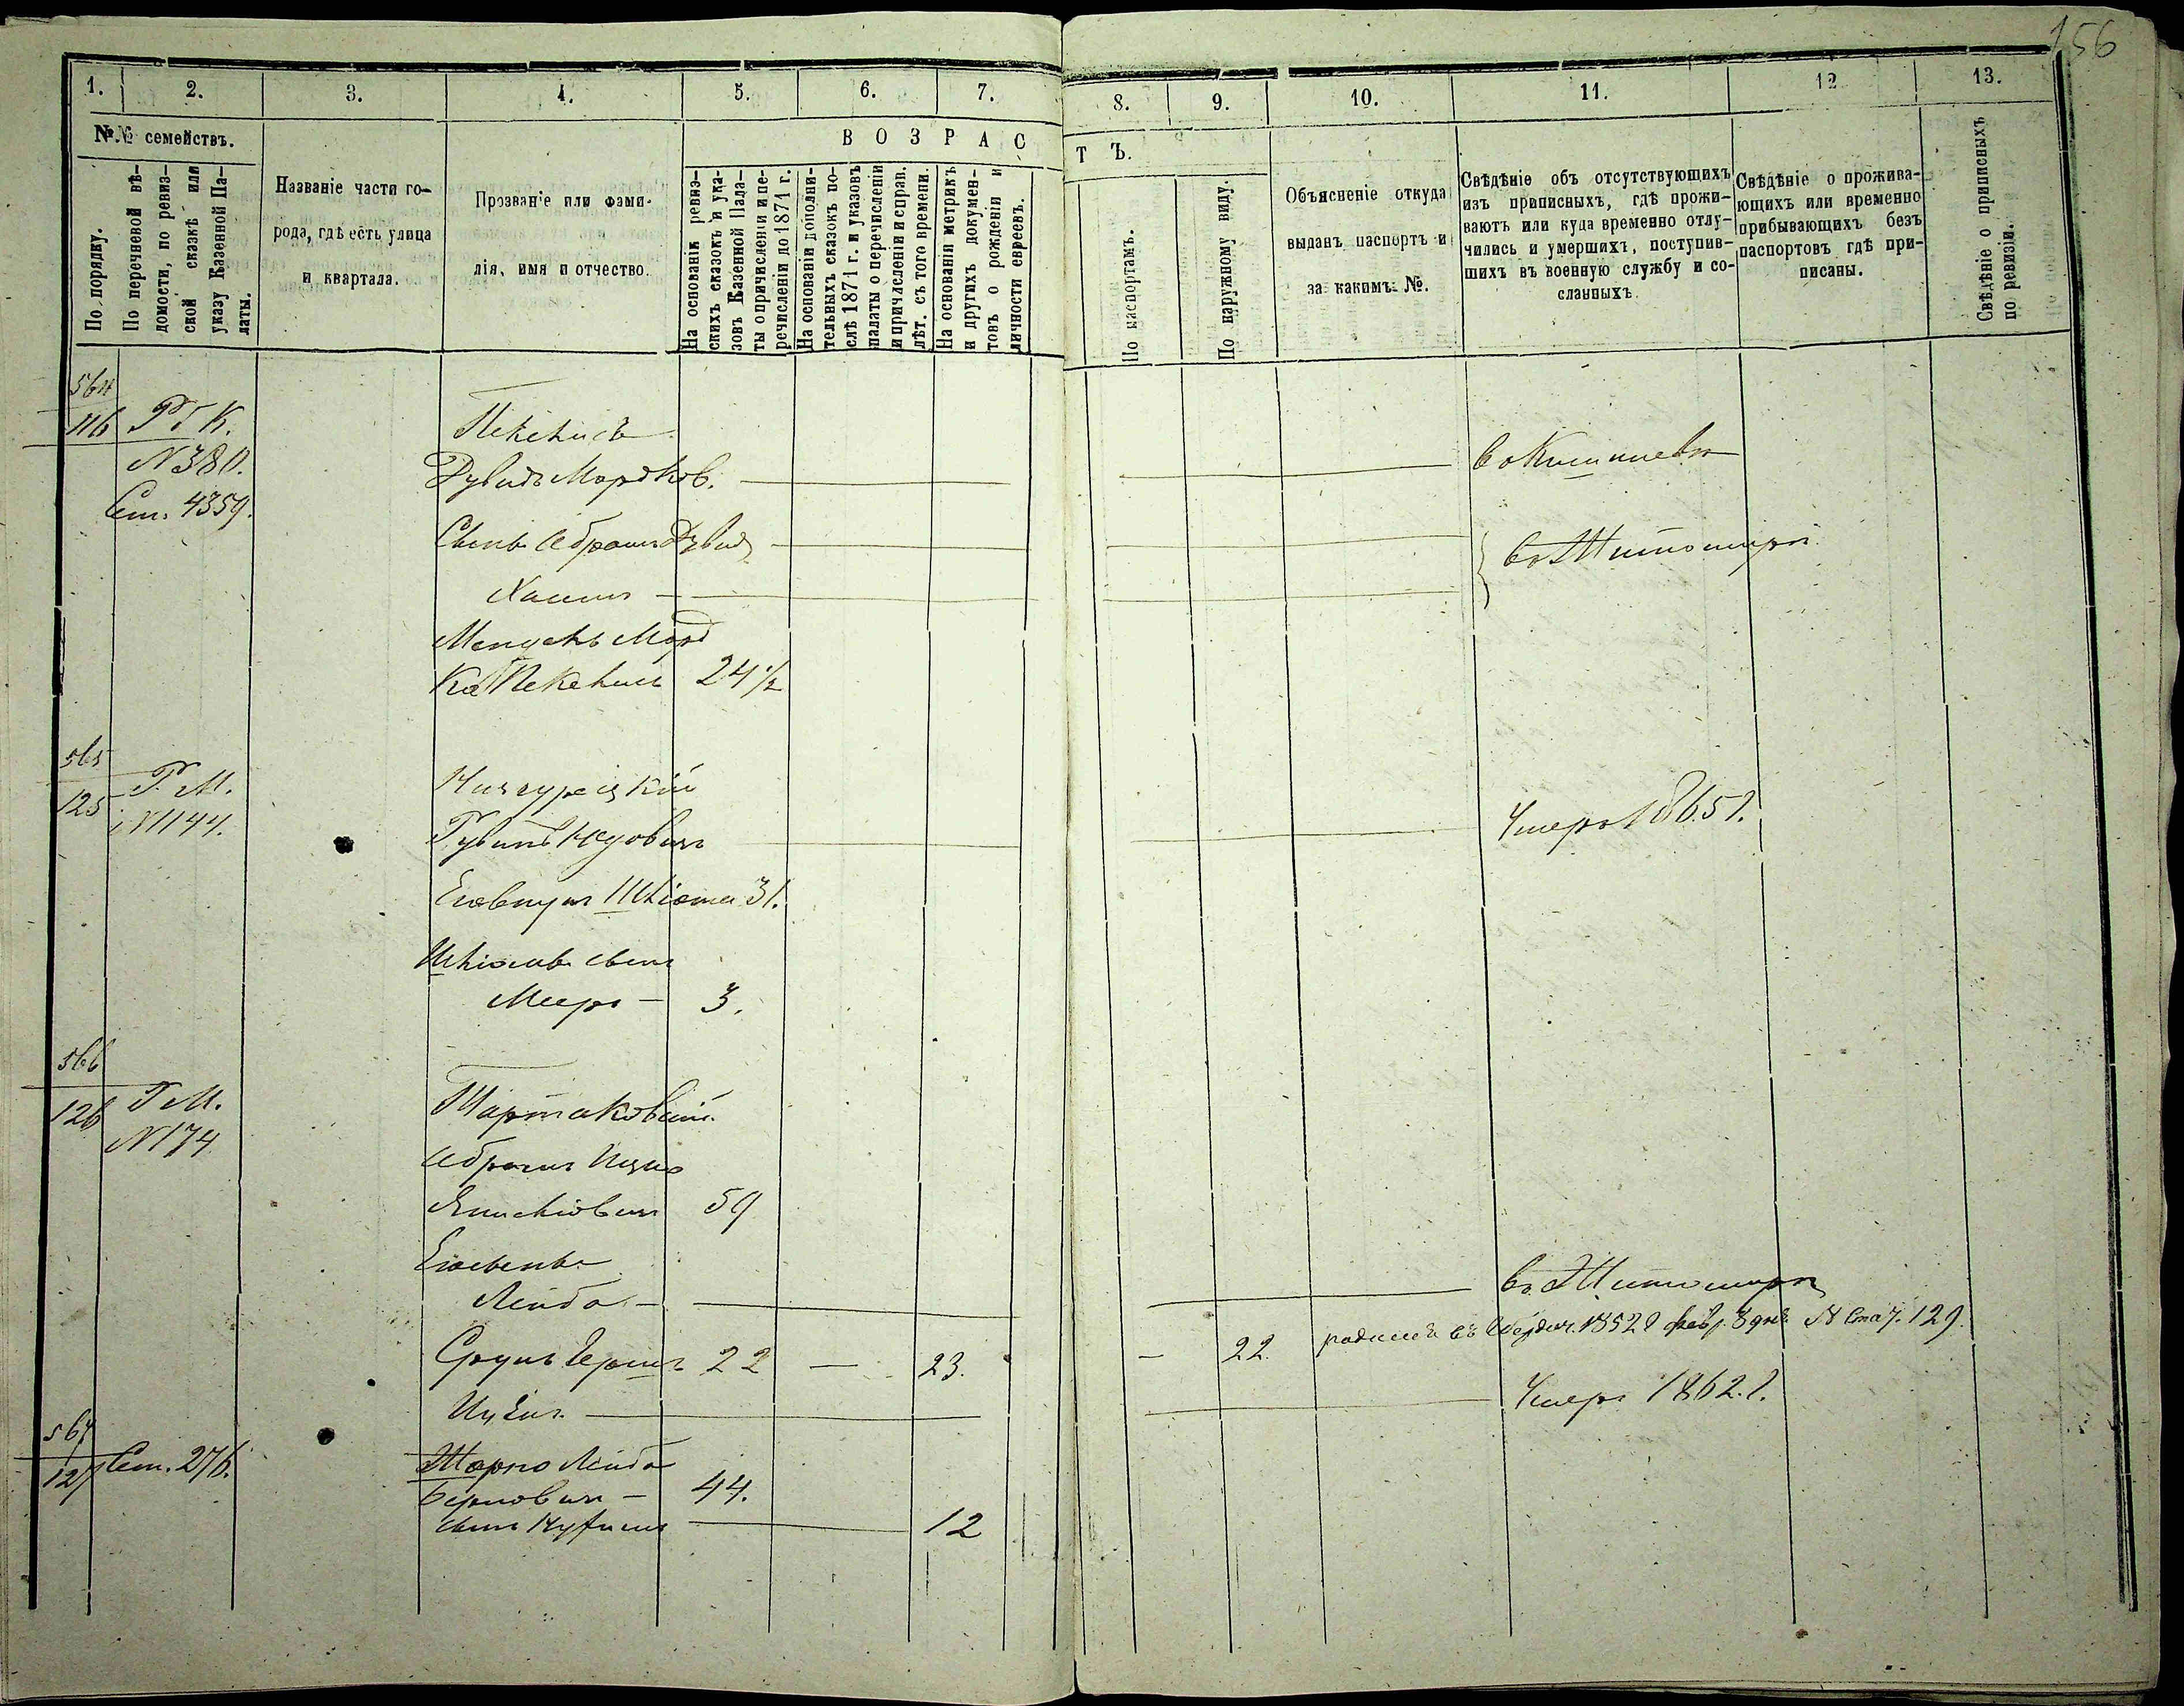 156
1. 2. 3. 4. 5. 6. 7. 8. 9. 10. 11. 12 13.
№№ семействъ.
В О З Р А С Т Ъ.
По порядку.
По перечневой вѣ-
домости, по ревиз-
ской сказкѣ или
указу Казенной Па-
латы.
Названіе части го-
рода, гдѣ есть улица
и квартала.
Прозваніе или фами-
лія, имя и отчество.
На основаніи ревиз-
скихъ сказокъ и ука-
зовъ Казенной Пала-
ты о причисленіи и пе-
речисленіи до 1871 г.
На основаніи дополни-
тельныхъ сказокъ по-
слѣ 1871 г. и указовъ
палаты о перечисленіи
и причисленіи и справ.
лѣт. съ того времени.
На основаніи метрикъ
и другихъ докумен-
товъ о рожденіи и
личности евреевъ.
По паспортамъ.
По наружному виду.
Объясненіе откуда
выданъ паспортъ и
за какимъ №.
Свѣдѣніе объ отсутствующихъ
изъ приписныхъ, гдѣ прожи-
ваютъ или куда временно отлу-
чились и умершихъ, поступив-
шихъ въ военную службу и со-
сланныхъ.
Свѣдѣніе о прожива-
ющихъ или временно
прибывающихъ безъ
паспортовъ гдѣ при-
писаны.
Свѣдѣніе о приписныхъ
по ревизіи.
564
116 Р. К.
N 380.
Сем. 4359.
Пекелисъ
Дувидъ Мордков. — — въ Кишиневѣ
Сынъ Абрамъ Дувид — — въ Житомирѣ
Хаимъ — —
Мендель Морд
ка Пекелисъ 24½
565
125 Р. М.
N 1144.
Рувинъ — — Умеръ 1865 г.
Шліома 31.
Шліомы сынъ
Мееръ — 3.
566
126 Р. М.
N 174
Тартаковскій
Абрамъ Ицко
59
Его сынъ
Лейба — — въ Житомирѣ
Сруль Гершъ 22 — 23. — 22. родился въ Бердич. 1852 г. февр. 3 дня 129.
— — Умеръ 1862. г.
567
127 Сем. 276.
Лейба
Берковичъ — 44.
сынъ — 12